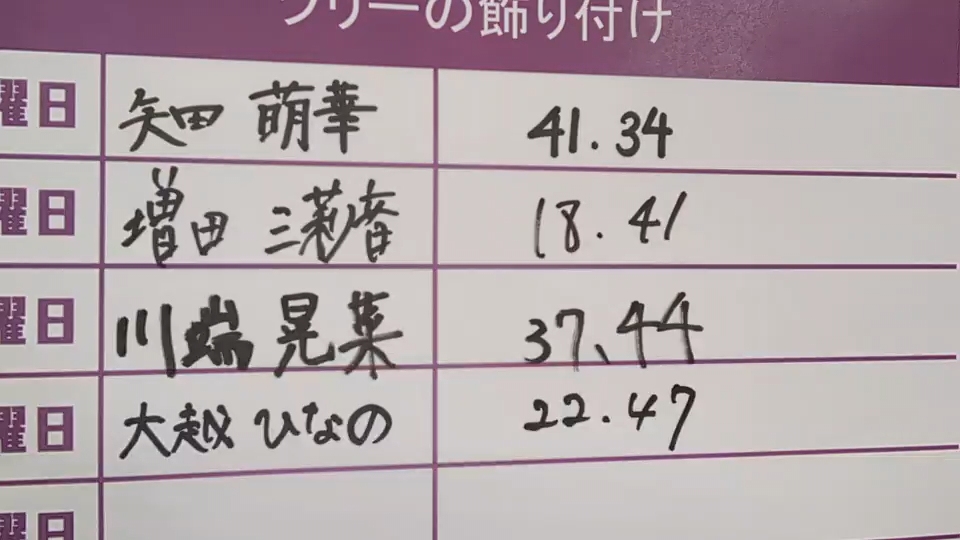 ツリーの飾り付け
曜日 矢田 萌華 41.34
曜日 増田 三莉音 18.41
曜日 川端 晃菜 37.44
曜日 大越 ひなの 22.47
曜日